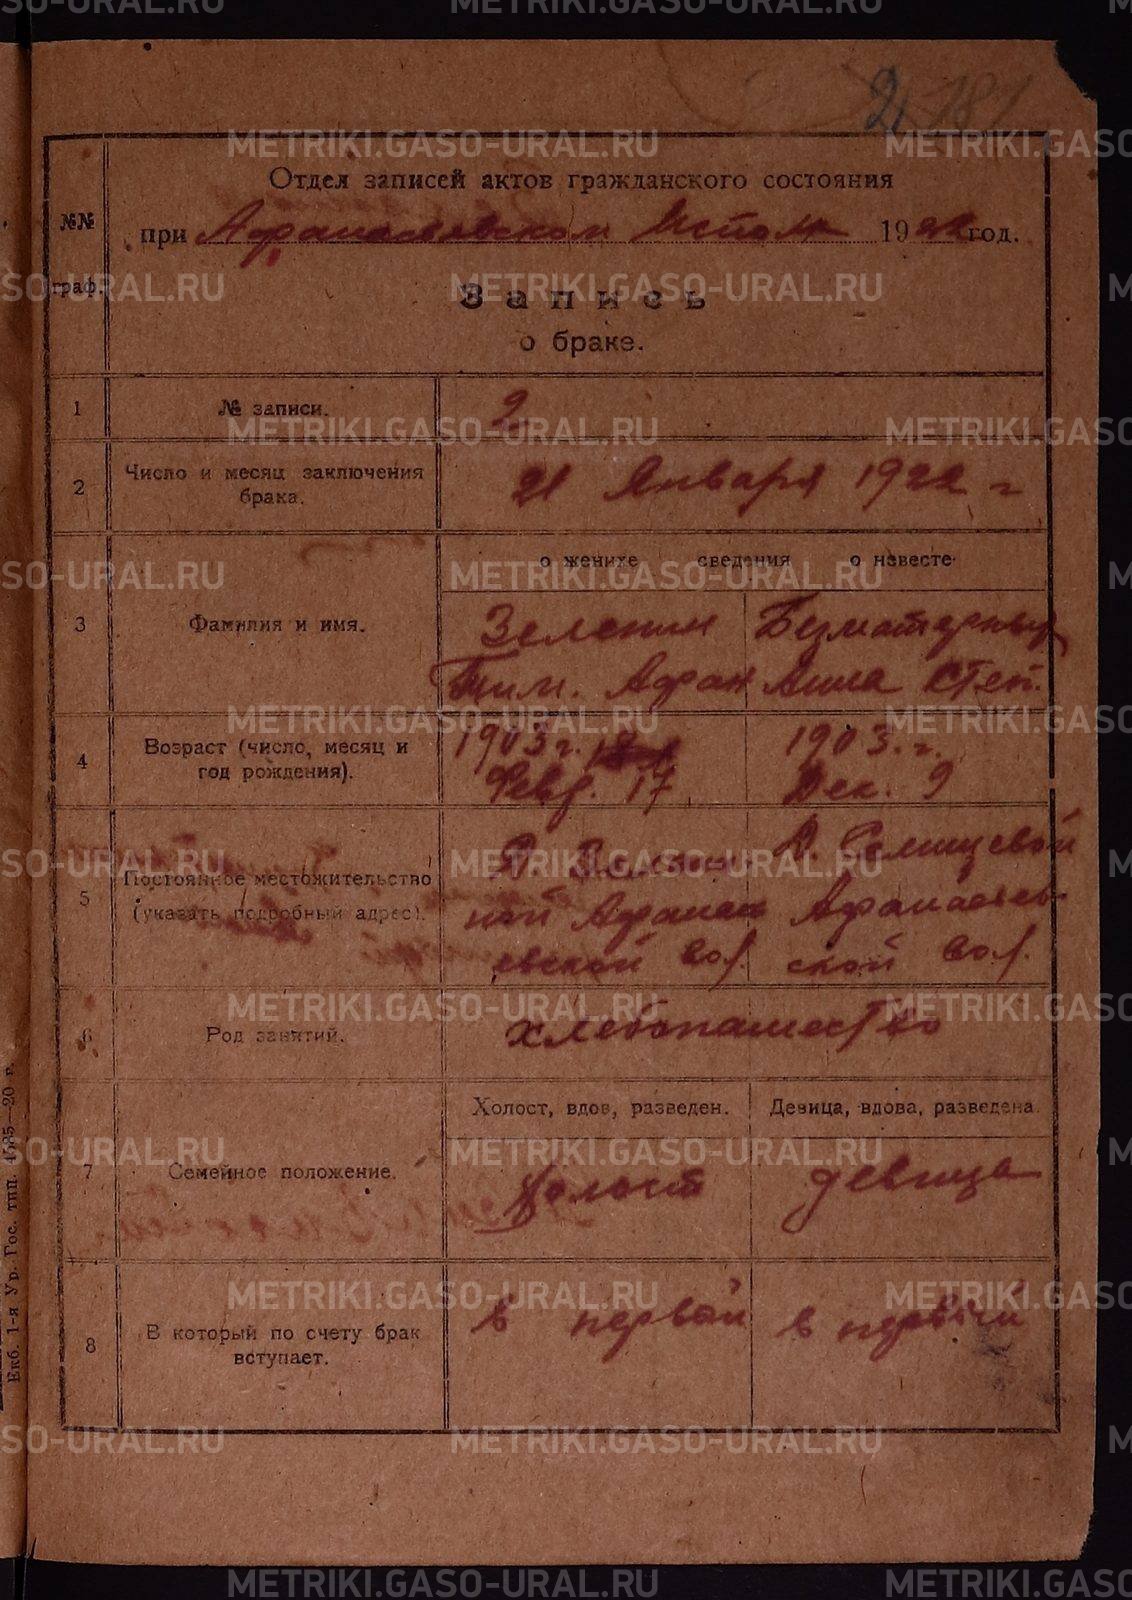 2 181
Отдел записей актов гражданского состояния
№№ граф.
при Афанасьевском Исполк 1922 год.
Запись
о браке.
1 № записи. 2
2 Число и месяц заключения брака. 21 Января 1922 г
о женихе сведения о невесте
3 Фамилия и имя.
Зеленин
Тим. Афан
Безматерных
Анна Степ.
4 Возраст (число, месяц и год рождения).
1903 г.
Февр. 17
1903. г.
Дек. 9
5 Постоянное местожительство (указать подробный адрес).
ной Афанась
евской вол.
Д. Голицевой
Афанасьев-
ской вол.
6 Род занятий. хлебопашество
Холост, вдов, разведен. Девица, вдова, разведена.
7 Семейное положение. Холост девица
8 В который по счету брак вступает. в первой в первый
Екб. 1-я Ур. Гос. тип. 4585—20 г.
METRIKI.GASO-URAL.RU